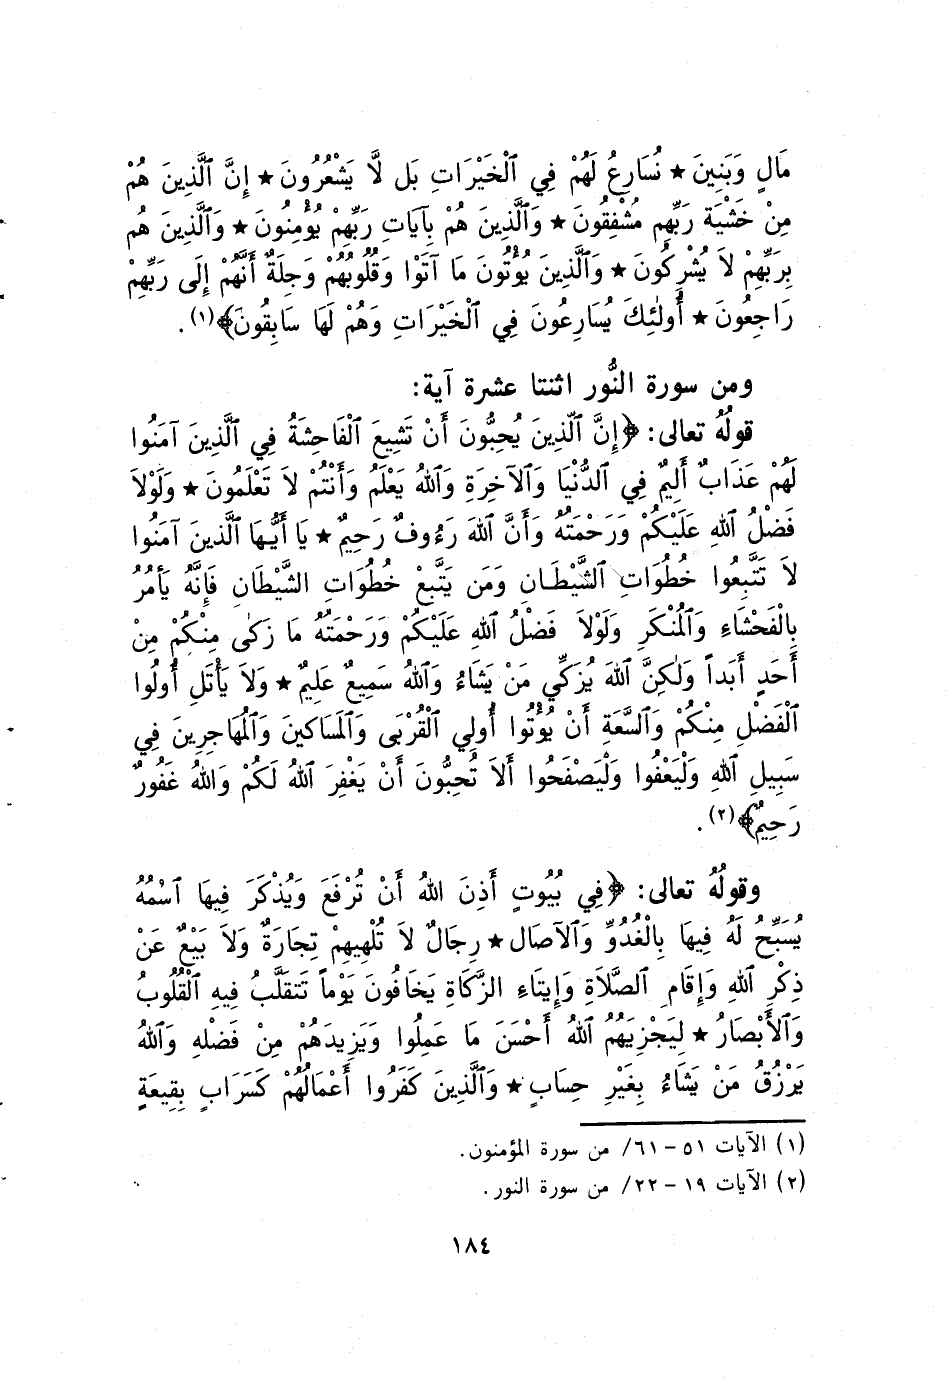 مَالٍ وَبَنِينَ ★ نُسَارِعُ لَهُمْ فِي ٱلْخَيْرَاتِ بَل لَّا يَشْعُرُونَ ★ إِنَّ ٱلَّذِينَ هُمْ
مِنْ خَشْيَةِ رَبِّهِم مُشْفِقُونَ ★ وَٱلَّذِينَ هُمْ بِآيَاتِ رَبِّهِمْ يُؤْمِنُونَ ★ وَٱلَّذِينَ هُم
بِرَبِّهِمْ لَا يُشْرِكُونَ ★ وَٱلَّذِينَ يُؤْتُونَ مَا آتَوْا وَقُلُوبُهُمْ وَجِلَةٌ أَنَّهُمْ إِلَى رَبِّهِمْ
رَاجِعُونَ ★ أُولَئِكَ يُسَارِعُونَ فِي ٱلْخَيْرَاتِ وَهُمْ لَهَا سَابِقُونَ﴾(١).
ومن سورة النُّور اثنتا عشرة آية:
قولُهُ تعالى: ﴿إِنَّ ٱلَّذِينَ يُحِبُّونَ أَنْ تَشِيعَ ٱلْفَاحِشَةُ فِي ٱلَّذِينَ آمَنُوا
لَهُمْ عَذَابٌ أَلِيمٌ فِي ٱلدُّنْيَا وَٱلآخِرَةِ وَٱللهُ يَعْلَمُ وَأَنْتُمْ لَا تَعْلَمُونَ ★ وَلَوْلَا
فَضْلُ ٱللهِ عَلَيْكُمْ وَرَحْمَتُهُ وَأَنَّ ٱللهَ رَءُوفٌ رَحِيمٌ ★ يَا أَيُّهَا ٱلَّذينَ آمَنُوا
لَا تَتَّبِعُوا خُطُوَاتِ ٱلشَّيْطَانِ وَمَن يَتَّبِعْ خُطُوَاتِ الشَّيْطَانِ فَإِنَّهُ يَأْمُرُ
بِالْفَحْشَاءِ وَٱلْمُنْكَرِ وَلَوْلَا فَضْلُ ٱللهِ عَلَيْكُمْ وَرَحْمَتُهُ مَا زَكىٰ مِنْكُمْ مِنْ
أَحَدٍ أَبَداً وَلٰكِنَّ ٱللهَ يُزَكِّي مَنْ يَشَاءُ وَٱللهُ سَمِيعٌ عَلِيمٌ ★ وَلَا يَأْتَلِ أُولُوا
ٱلْفَضْلِ مِنْكُمْ وَٱلسَّعَةِ أَنْ يُؤْتُوا أُولِي ٱلْقُرْبَى وَٱلْمَسَاكِينَ وَٱلْمُهَاجِرِينَ فِي
سَبِيلِ ٱللهِ وَلْيَعْفُوا وَلْيَصْفَحُوا أَلَا تُحِبُّونَ أَنْ يَغْفِرَ ٱللهُ لَكُمْ وَاللهُ غَفُورٌ
رَحِيمٌ﴾(٢).
وقولُهُ تعالى: ﴿فِي بُيُوتٍ أَذِنَ اللهُ أَنْ تُرْفَعَ وَيُذْكَرَ فِيهَا ٱسْمُهُ
يُسَبِّحُ لَهُ فِيهَا بِالْغُدُوِّ وَٱلآصَالِ ★ رِجَالٌ لَا تُلْهِيهِمْ تِجَارَةٌ وَلَا بَيْعٌ عَنْ
ذِكْرِ ٱللهِ وَإِقَامِ ٱلصَّلَاةِ وَإِيتَاءِ الزَّكَاةِ يَخَافُونَ يَوْماً تَتَقَلَّبُ فِيهِ ٱلْقُلُوبُ
وَٱلأَبْصَارُ ★ لِيَجْزِيَهُمُ ٱللهُ أَحْسَنَ مَا عَمِلُوا وَيَزِيدَهُمْ مِنْ فَضْلِهِ وَٱللهُ
يَرْزُقُ مَنْ يَشَاءُ بِغَيْرِ حِسَابٍ ★ وَٱلَّذِينَ كَفَرُوا أَعْمَالُهُمْ كَسَرَابٍ بِقِيعَةٍ
(١) الآيات ٥١ - ٦١/ من سورة المؤمنون.
(٢) الآيات ١٩ - ٢٢/ من سورة النور.
١٨٤